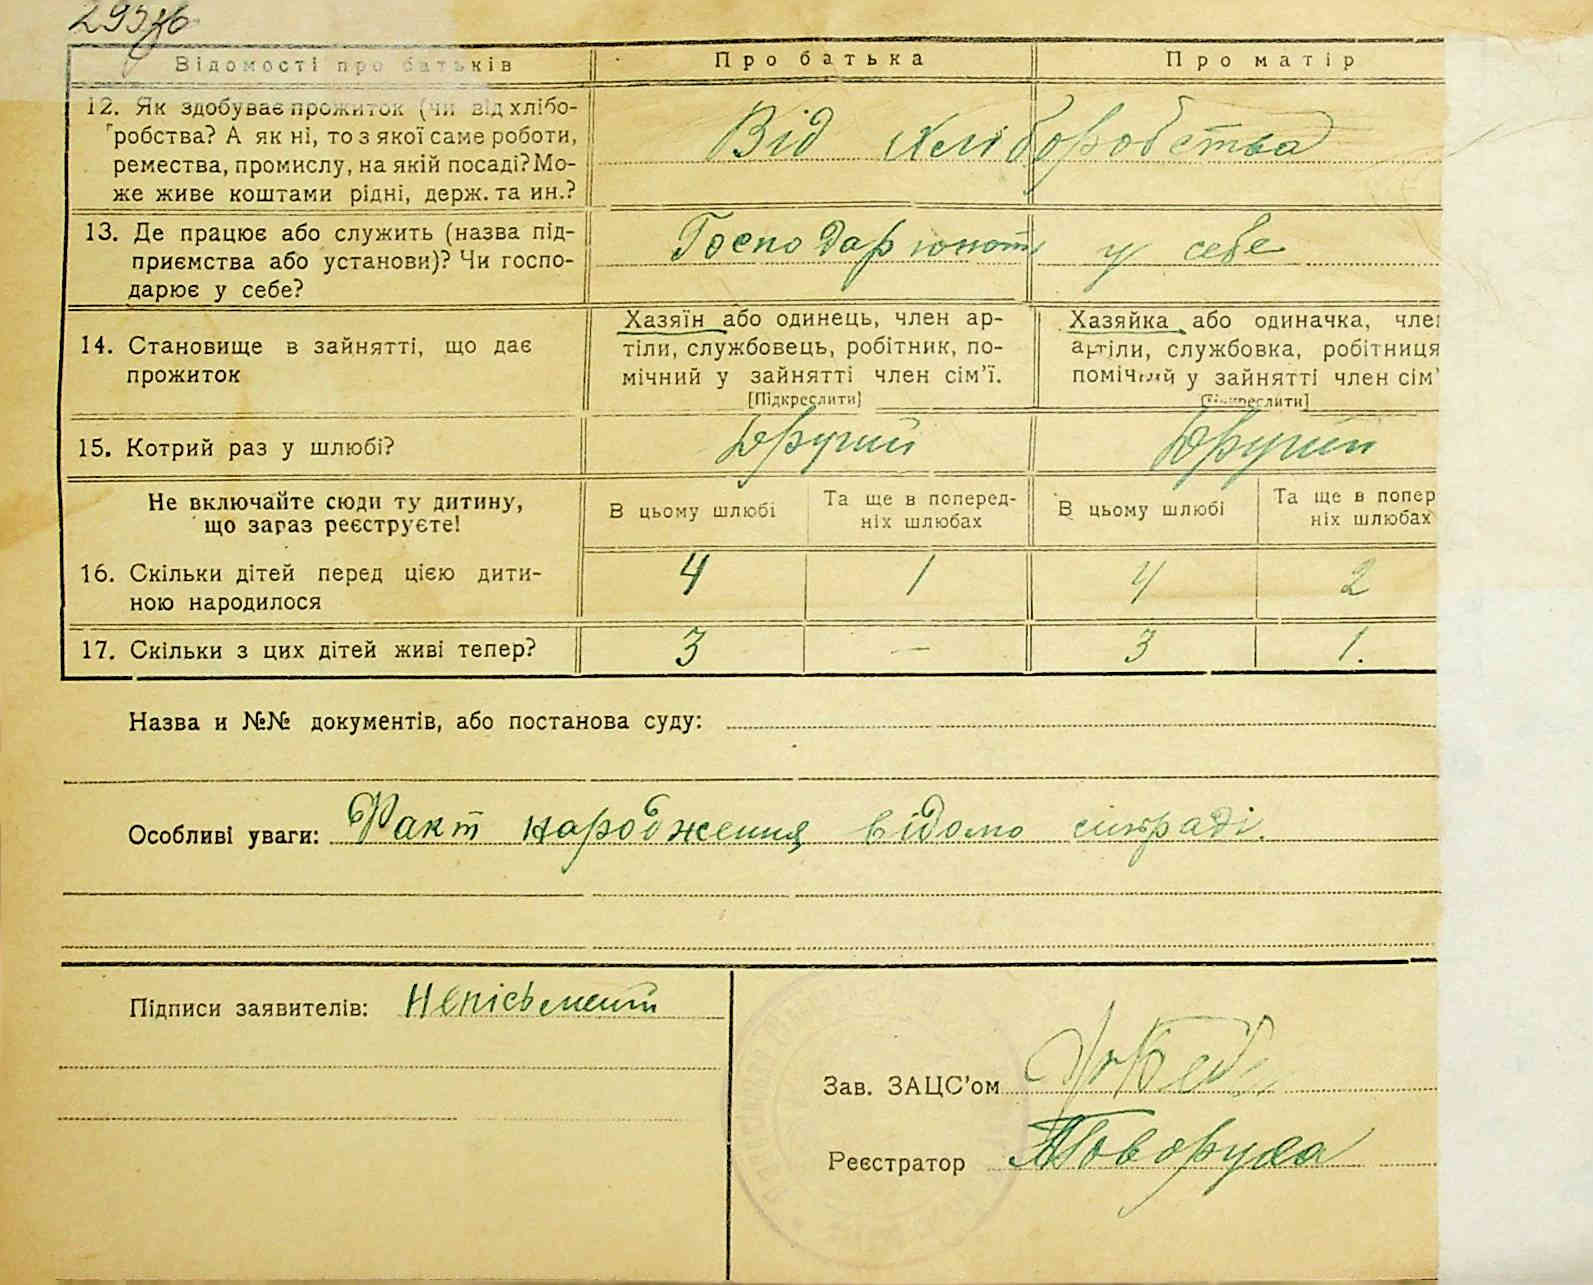 Відомості про батьків
Про батька
Про матір
12. Як здобуває прожиток (чи від хлібо-
робства? А як ні, то з якої саме роботи,
ремества, промислу, на якій посаді? Мо-
же живе коштами рідні, держ. та ин.?
Від хліборобства
13. Де працює або служить (назва під-
приємства або установи)? Чи госпо-
дарює у себе?
Господарюють у себе
14. Становище в зайнятті, що дає
прожиток
Хазяїн або одинець, член ар-
тіли, службовець, робітник, по-
мічний у зайнятті член сім'ї.
[Підкреслити]
Хазяйка або одиначка, член
артіли, службовка, робітниця
помічний у зайнятті член сім'
[Підкреслити]
15. Котрий раз у шлюбі?
Другий
Другий
Не включайте сюди ту дитину,
що зараз реєструєте!
В цьому шлюбі
Та ще в поперед-
ніх шлюбах
В цьому шлюбі
Та ще в попер
ніх шлюбах
16. Скільки дітей перед цією дити-
ною народилося
4
1
4
2
17. Скільки з цих дітей живі тепер?
3
—
3
1.
Назва и №№ документів, або постанова суду:
Особливі уваги: Факт народження відомо сильраді.
Підписи заявителів: Неписьмений
Зав. ЗАЦС'ом
Реєстратор Говоруха